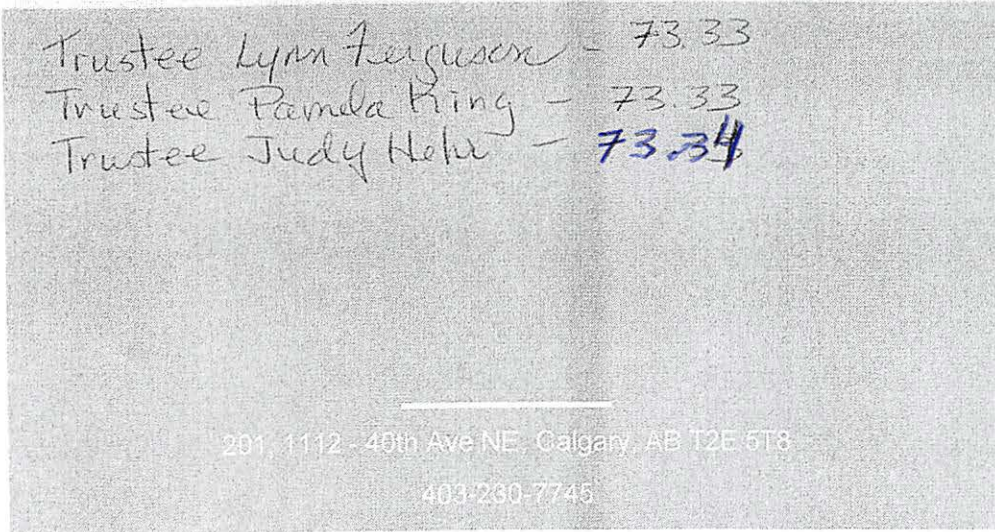 Trustee Lynn Ferguson - 73.33
Trustee Pamela King - 73.33
Trustee Judy Hehr - 73.34
201, 1112 - 40th Ave NE, Calgary, AB T2E 5T8
403-230-7745